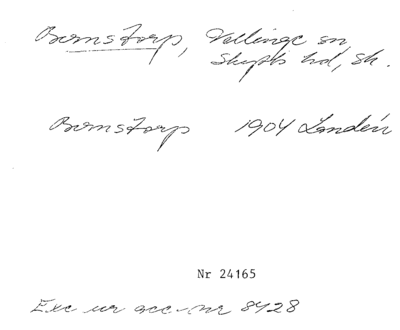 Bernstorp, Vellinge sn,
Skytts hd, Sk.
Bernstorp 1904 Landén
Nr 24165
Exc ur acc-nr 8428